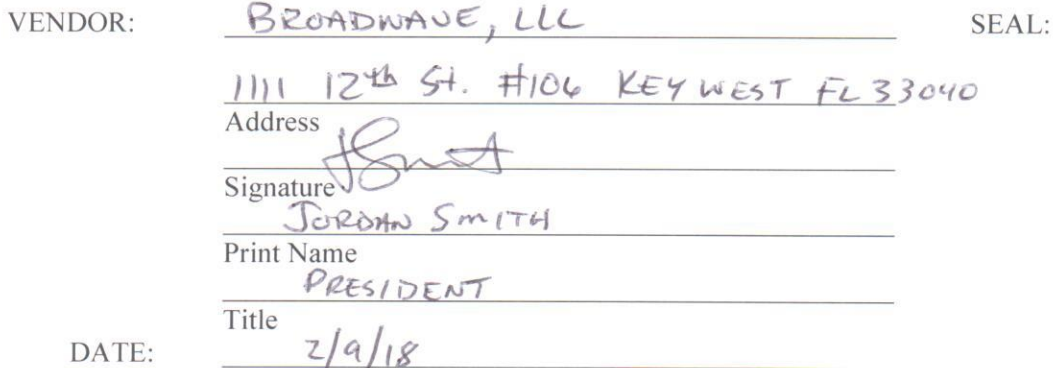 VENDOR: BROADWAVE, LLC SEAL:
1111 12th St. #106 KEY WEST FL 33040
Address
Signature
JORDAN SMITH
Print Name
PRESIDENT
Title
DATE: 2/9/18